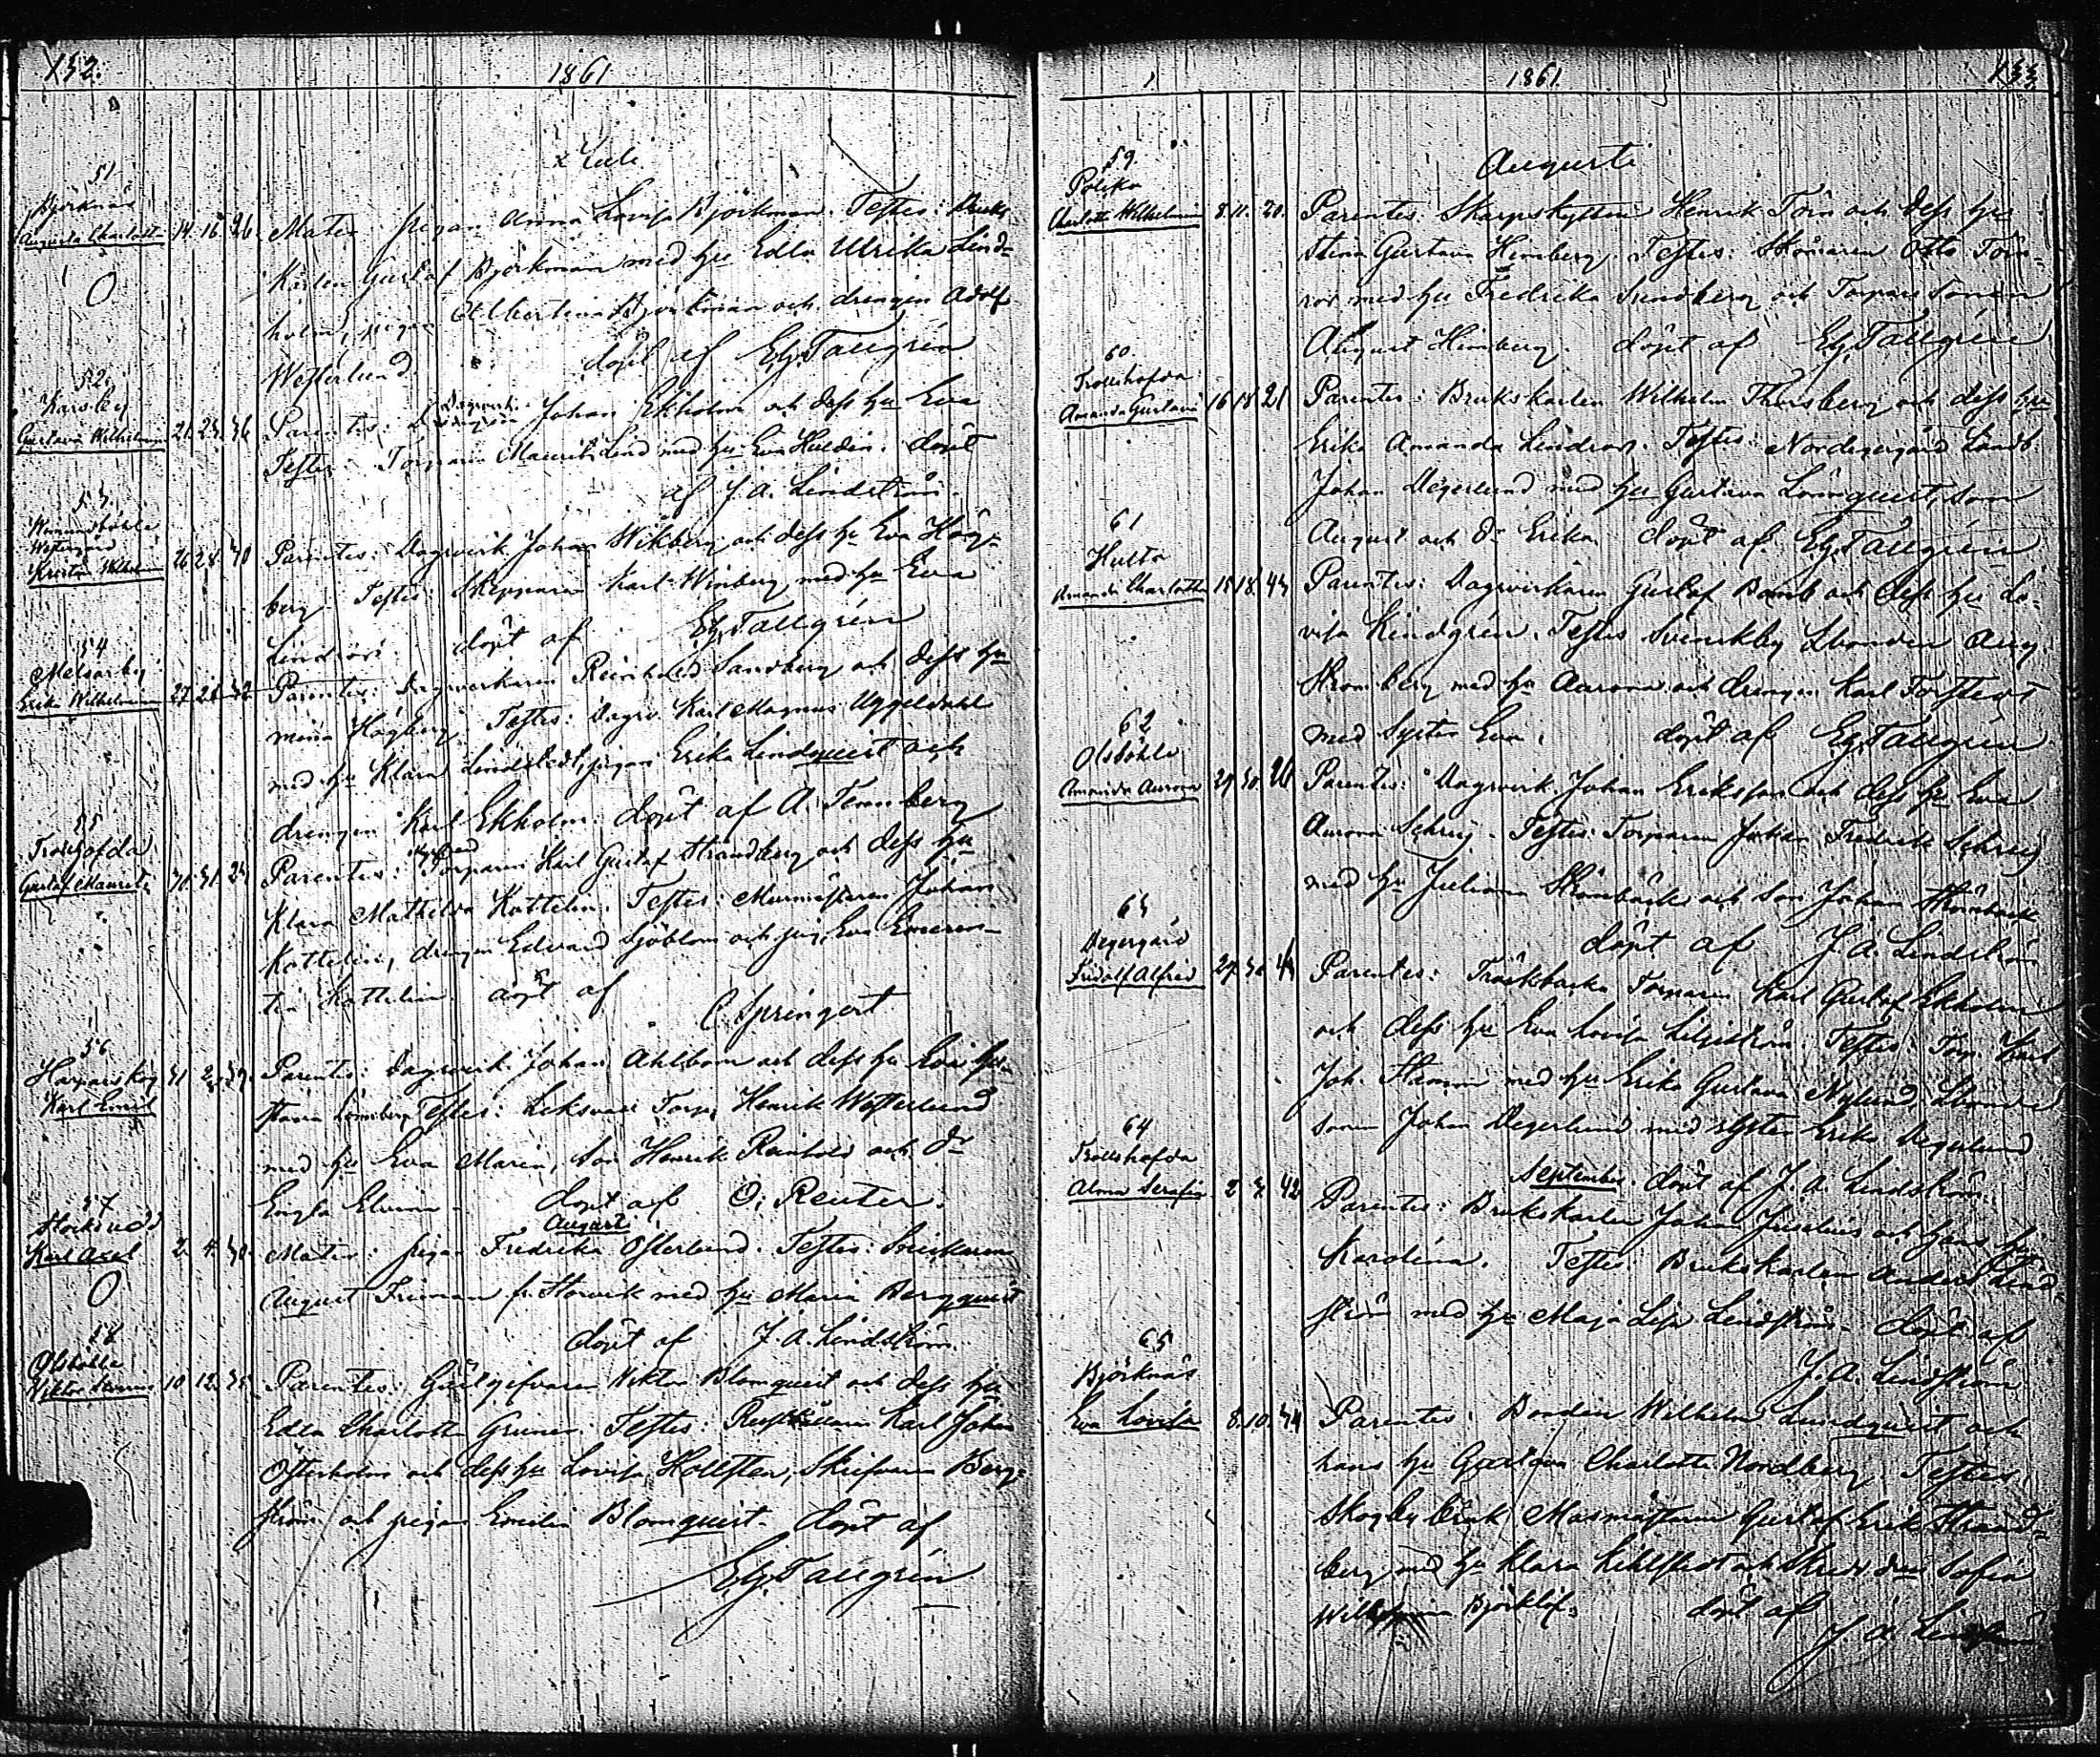 152.
1861
Juli
51
Björknäs
Augusta Charlotta 14. 16. 26.
Mater pigan Anna Lovisa Björkman. Testes: Bruks
karlen Gustaf Bjorkman med hu Edla Ulrika Lind-
holm, pigan Albertina Björkman och drengen Adolf
Westerlund döpt af Elg. Tallgrén
52.
Karsby
Gustava Wilhelmina 21. 23. 36
Parentes: Johan Ekholm och dess hu Eva
Testes: Torparen Maurits Lind med hu Eva Huldin. döpt
af J. A. Lindström.
53.
Westergård
Kristina Wilhelmina 26 28. 30
Parentes: Dagsverk. Johan Wikberg och dess hu Eva Hög-
berg. Testes: Skepparen Karl Winberg med hu Eva
Lindroos. döpt af Elg. Tallgrén
54
Melsarby
Erika Wilhelmina 27. 28. 32
Parentes: Dagsverkaren Reinhold Sandberg och dess hu
Mina Högberg. Testes: Dagsv. Karl Magnus Uggeldahl
med hu Klara Linderstedt, pigan Erika Lindquist och
drengen Karl Ekholm. döpt af A. Tennberg
55
Trollshofda
Gustaf Maurits 30. 31. 23
Parentes: Torparen Karl Gustaf Strandberg och dess hu
Klara Mathilda Kottelin. Testes: Murmästaren Johan
Kottelin, drengen Edvard Sjöblom och pig. Eva Emeren-
tia Kottelin. döpt af
C Springert
56
Harparskog
Karl Emil 31 2/8 39.
Parentes: Dagsverk. Johan Ahlbom och dess hu Eva Gu-
stava Lönnberg Testes: Leksvall Torp. Henrik Westerlund
med hu Eva Maria, son Henrik Reinhold och dr
Engla Elvira. döpt af O. Reuter.
Augusti
57
Karl Axel 2. 4. 30.
Mater: pigan Fredrika Osterlund. Testes: Snickaren
August Friman fr. Storvik med hu Maria Bergquist
döpt af J. A. Lindström.
58
Olsböhle
Viktor 10 12. 35
Parentes: Gästgifvaren Viktor Blomquist och dess hu
Edla Charlotta Gruner. Testes: Karl Johan
Österholm och dess hu Lovisa Hollsten, Skrifvaren Berg-
ström och pigan Emilia Blomquist. döpt af
Elg. Tallgrén
1861.
153
Augusti
59.
Pölska
Charlotta Wilhelmina 8. 11. 20.
Parentes: Skarpskytten Henrik Törn och dess hu
Stina Gustava Himberg. Testes: Skomaren Otto Törn-
roos med hu Fredrika Sundberg och Torpare Sonen
August Himberg. döpt af Elg. Tallgrén
60.
Trollshofda
Amanda Gustava 16 18 21
Parentes: Brukskarlen Wilhelm Thorsberg och dess hu
Erika Amanda Lindroos. Testes: Nordegergård Landb.
Johan Degerlund med hu Gustava Lönnquist, son
August och dr Erika. döpt af Elg. Tallgrén
61
Hulta
Amanda Charlotta 15 18. 43
Parentes: Dagsverkaren Gustaf Bomb och dess hu Lo-
visa Lindgrén. Testes Svenskby Lbonden Aug.
Strömberg med hu Aurora och drengen Karl Forsten
med syster Eva. döpt af Elg. Tallgrén
62
Olsböhle
Amanda Aurora 29. 30. 26
Parentes: Dagsverk. Johan Eriksson och dess hu Eva
Aurora Schrey. Testes: Torparen Johan Fredrik Schrey
med hu Juliana Strömbäck och son Johan Strömbäck
döpt af J. A. Lindström
63
Degergård
Fridolf Alfred 29.
Parentes: Träskbacka Torparen Karl Gustaf Ekholm
och dess hu Eva Lovisa Liljeström. Testes: Torp. Karl
Joh. Stamm med hu Erika Gustava Nylund, Lbonde
sonen Johan Degerlund med syster Erika Degerlund
September. döpt af J. A. Lindström.
64
Trollshofda
Alma Serafia 2 42
Parentes: Brukskarlen Johan Juselius och hans hu
Karolina. Testes: Brukskarlen Anders Lind-
ström med hu Maja Lisa Lindström. döpt af
J. A. Lindström
65
Björknäs
Eva Lovisa 8. 10. 34
Parentes: Bonden Wilhelm Lundquist och
hans hu Gustava Charlotta Nordberg. Testes.
Skogby Bruk Masmästaren Gustaf Erik Strand-
berg med hu Klara och Sofia
Wilhelmina Björklöf. döpt af
J. A. Lindström